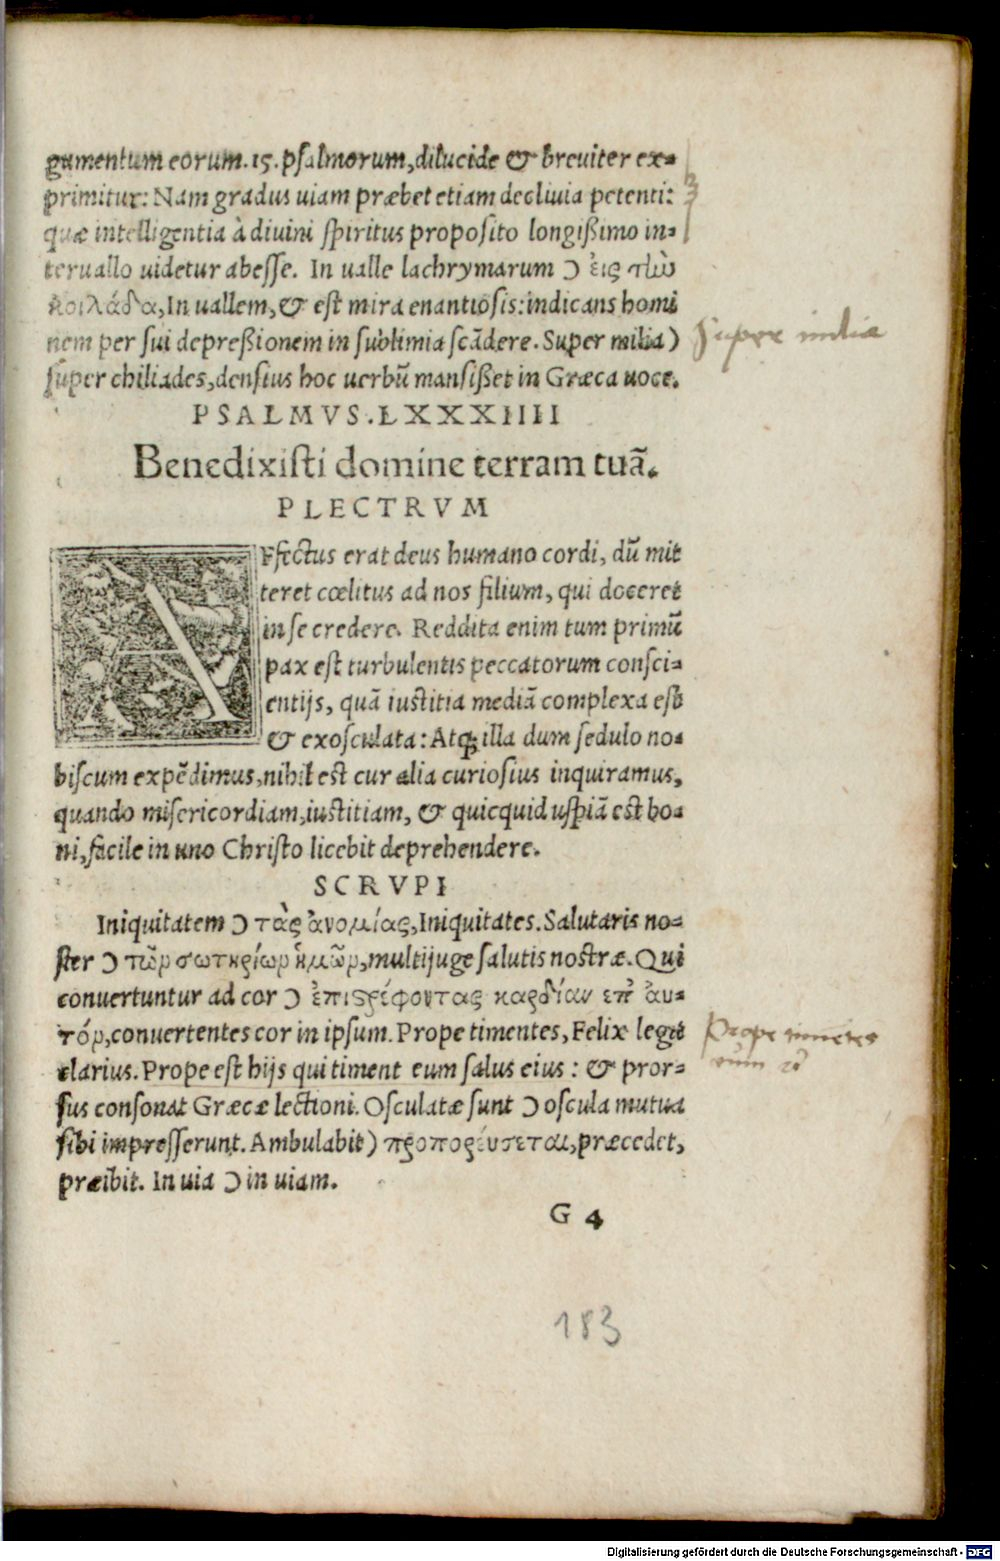 gumentum eorum. 15. psalmorum, dilucide & breviter ex-
primitur: Nam gradus uiam præbet etiam declivia petenti:
quæ intelligentia à divini spiritus proposito longißimo in-
teruallo uidetur abesse. In ualle lachrymarum Ɔ εἰς τὼ
κοιλάδα, In uallem, & est mira enantiosis: indicans homi
nem per sui depreßionem in sublimia scãdere. Super milia)
super chiliades, densius hoc uerbũ mansißet in Græca uoce.
Supre milia
PSALMVS. LXXXIIII
Benedixisti domine terram tuã.
PLECTRVM
AFfectus erat deus humano cordi, dũ mit
teret cœlitus ad nos filium, qui doceret
in se credere. Reddita enim tum primũ
pax est turbulentis peccatorum consci-
entijs, quã iustitia mediã complexa est
& exosculata: Atq; illa dum sedulo no-
biscum expẽdimus, nihil est cur alia curiosius inquiramus,
quando misericordiam, iustitiam, & quicquid uspiã est bo-
ni, facile in uno Christo licebit deprehendere.
SCRVPI
Iniquitatem Ɔ τὰς ἀνομίας, Iniquitates. Salutaris no-
ster Ɔ τῶρ σωτηρίωρ ἡμῶρ, multijuge salutis nostræ. Qui
conuertuntur ad cor Ɔ ἐπιςρέφοντας καρδίαν επ' ἀυ-
τόρ, conuertentes cor in ipsum. Prope timentes, Felix legit
clarius. Prope est hijs qui timent eum salus eius: & pror-
sus consonat Græcæ lectioni. Osculatæ sunt Ɔ oscula mutua
sibi impresserunt. Ambulabit) προπορέυσεται, præcedet,
præibit. In uia Ɔ in uiam.
Prope timetes
G 4
183
Digitalisierung gefördert durch die Deutsche Forschungsgemeinschaft - DFG